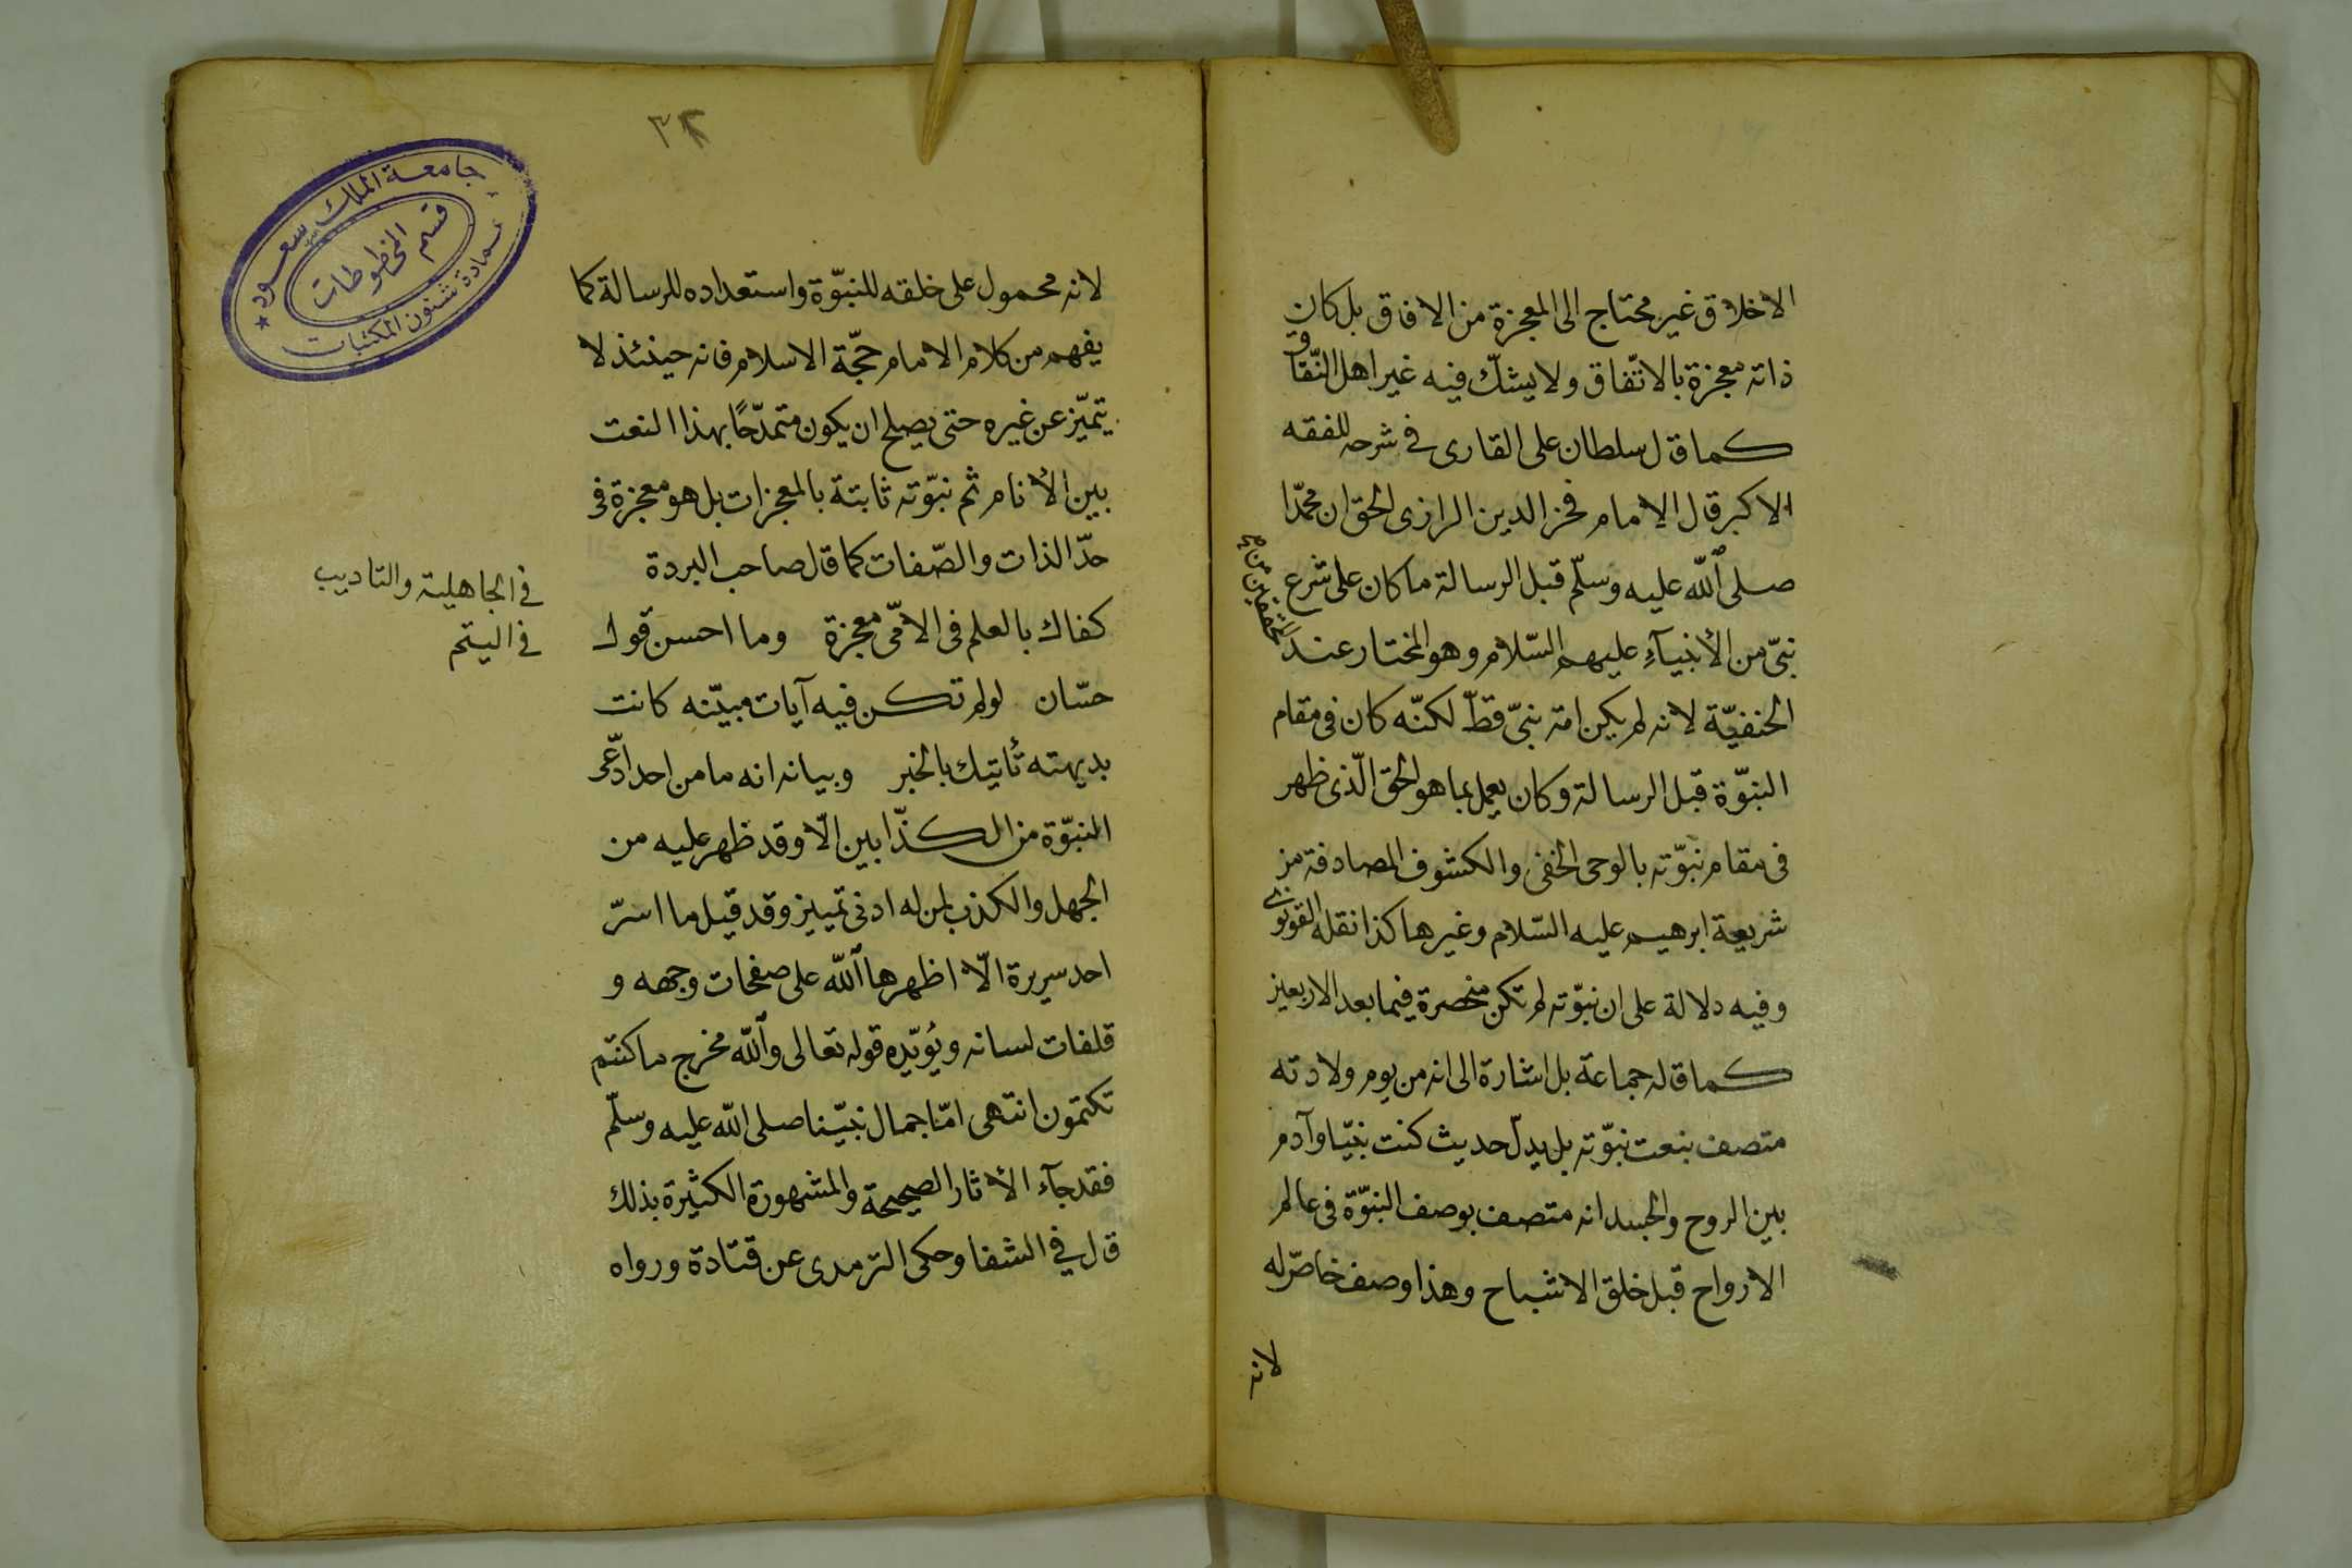 الاخلاق غير محتاج الى المعجزة من الافاق بل كان
ذاته معجزة بالاتّفاق ولا يشكّ فيه غير اهل النّفاق
كما قال سلطان على القارى فى شرحه للفقه
الاكبر قال الامام فخر الدين الرازى الحق ان محمّدا
صلى اللّه عليه وسلّم قبل الرسالة ما كان على شرع
نبىّ من الأنبيآءِ عليهم السّلام وهو المختار عند المحققين من
الحنفيّة لانه لم يكن امة نبىّ قطّ لكنّه كان فى مقام
النبوّة قبل الرسالة وكان يعمل بما هو الحق الّذى ظهر
فى مقام نبوّته بالوحى الخفى والكشوف الصادقة من
شريعة ابرهيم عليه السّلام وغيرها كذا نقله القونوى
وفيه دلالة على ان نبوّته لم تكن منحصرة فيما بعد الاربعين
كما قاله جماعة بل اشارة الى انه من يوم ولادته
متصف بنعت نبوّته بل يدلّ حديث كنت نبيّا وآدم
بين الروح والجسد انه متصف بوصف النبوّة فى عالم
الارواح قبل خلق الاشباح وهذا وصف خاصّ له
لانه
٣٢
جامعة الملك سعود
قسم المخطوطات
عمادة شئون المكتبات
لانه محمول على خلقه للنبوّة واستعداده للرسالة كما
يفهم من كلام الامام حجّة الاسلام فانه حينئذ لا
يتميّز عن غيره حتى يصلح ان يكون متمدّحًا بهذا النعت
بين الأنام ثم نبوّته ثابتة بالمعجزات بل هو معجزة فى
حدّ الذات والصّفات كما قال صاحب البردة
كفاك بالعلم فى الامّى معجزة وما احسن قول
فى الجاهلية والتاديب
فى اليتم
حسّان لو لم تكن فيه آيات مبيّنه كانت
بديهته تأتيك بالخبر وبيانه انه ما من احد ادّعى
النبوّة من الكذّابين الّا وقد ظهر عليه من
الجهل والكذب لمن له ادنى تمييز وقد قيل ما اسرّ
احد سريرة الّا اظهرها اللّه على صفحات وجهه و
قلفات لسانه ويؤيّده قوله تعالى واللّه مخرج ما كنتم
تكتمون انتهى امّا جمال نبيّنا صلى اللّه عليه وسلّم
فقد جآء الأثار الصحيحة والمشهورة الكثيرة بذلك
قال فى الشفا وحكى الترمدى عن قتادة ورواه